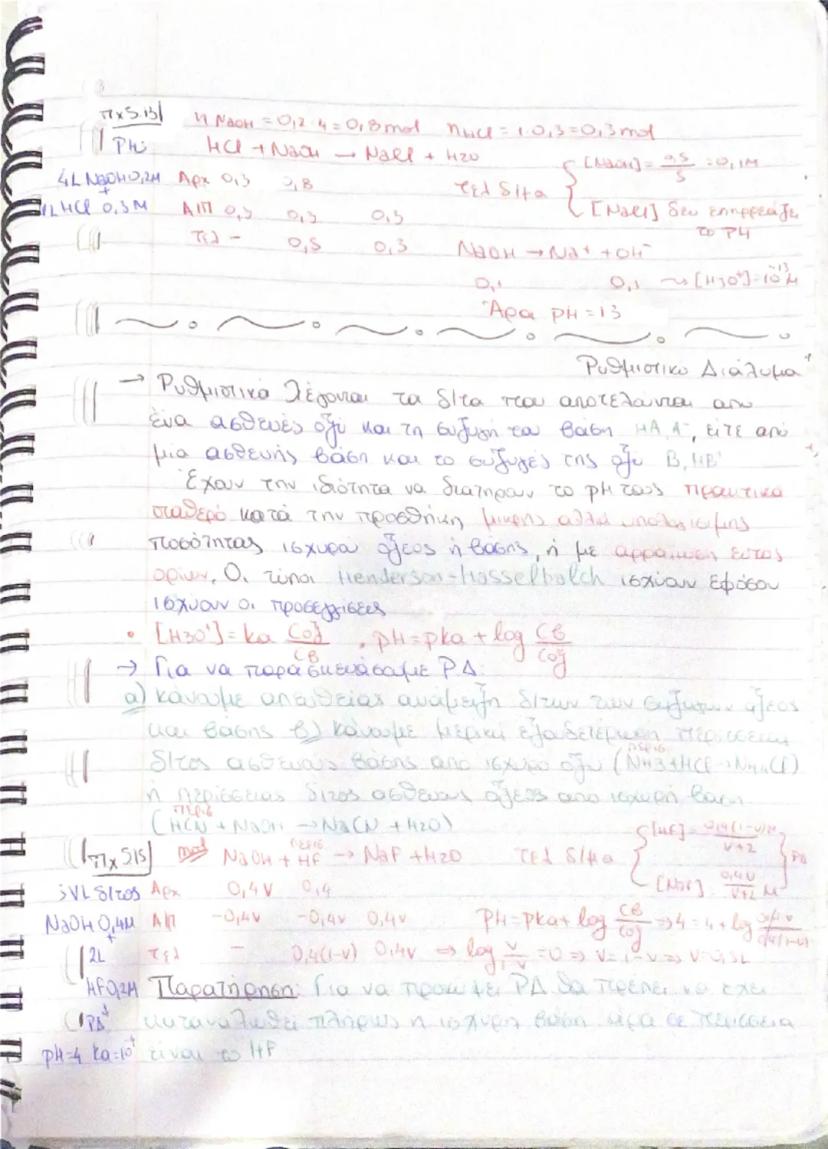 Πχ5.13
n NaOH = 0,2·4 = 0,8 mol nHCl = 1·0,3 = 0,3 mol
PH;
HCl + NaOH → NaCl + H2O
4L NaOH 0,2M Αρχ 0,3 0,8
+
1L HCl 0,3M ΑΠ 0,3 0,3 0,3
Τελ – 0,5 0,3
τελ δ/μα [NaOH] = 0,5/5 = 0,1M
[NaCl] δεν επηρεάζει
το PH
NaOH → Na⁺ + OH⁻
0,1 0,1 ⤳ [H3O⁺]=10⁻¹³M
Άρα pH=13
Ρυθμιστικό Διάλυμα
→ Ρυθμιστικά λέγονται τα δ/τα που αποτελούνται από
ένα ασθενές οξύ και τη συζυγή του βάση HA, A⁻, είτε από
μια ασθενής βάση και το συζυγές της οξύ B, HB⁺
Έχουν την ιδιότητα να διατηρούν το pH τους πρακτικά
σταθερό κατά την προσθήκη μικρής αλλά υπολογίσιμης
ποσότητας ισχυρού οξέος ή βάσης, ή με αρραίωση εντός
ορίων. Οι τύποι Henderson-Hasselbalch ισχύουν εφόσον
ισχύουν οι προσεγγίσεις
• [H3O⁺] = ka Cοξ/CB • pH = pka + log CB/Cοξ
→ Για να παρασκευάσουμε ΡΔ:
α) κάνουμε απευθείας ανάμειξη δ/των των συζυγών οξέος
και βάσης β) κάνουμε μερική εξουδετέρωση περίσσειας
περίσ.
δ/τος ασθενούς βάσης από ισχυρό οξύ (NH3+HCl→NH4Cl)
ή περίσσειας δ/τος ασθενούς οξέος από ισχυρή βάση
περίσ
(HCN + NaOH → NaCN + H2O)
Πχ515 mol NaOH + HF → NaF + H2O τελ δ/μα [HF] = 0,4(1-V)M/V+2
περίσ
ΡΔ
;VL δ/τος Αρχ 0,4V 0,4
[NaF] = 0,4V/V+2 M
NaOH 0,4M ΑΠ -0,4V -0,4V 0,4V PH = pka + log CB/Cοξ ⇒ 4 = 4 + log 0,4V/0,4(1-V)
+
2L Τελ – 0,4(1-V) 0,4V ⇒ log V/1-V = 0 ⇒ V=1-V ⇒ V=0,5L
HF 0,2M Παρατήρηση: Για να προκύψει ΡΔ θα πρέπει να έχει
ΡΔ καταναλωθεί πλήρως η ισχυρή βάση άρα σε περίσσεια
pH=4 ka=10⁻⁴ είναι το HF